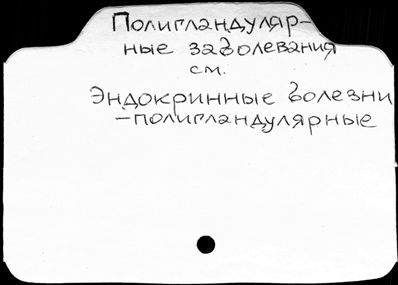 Полигландуляр-
ные заболевания
см.
Эндокринные болезни
-полигландулярные